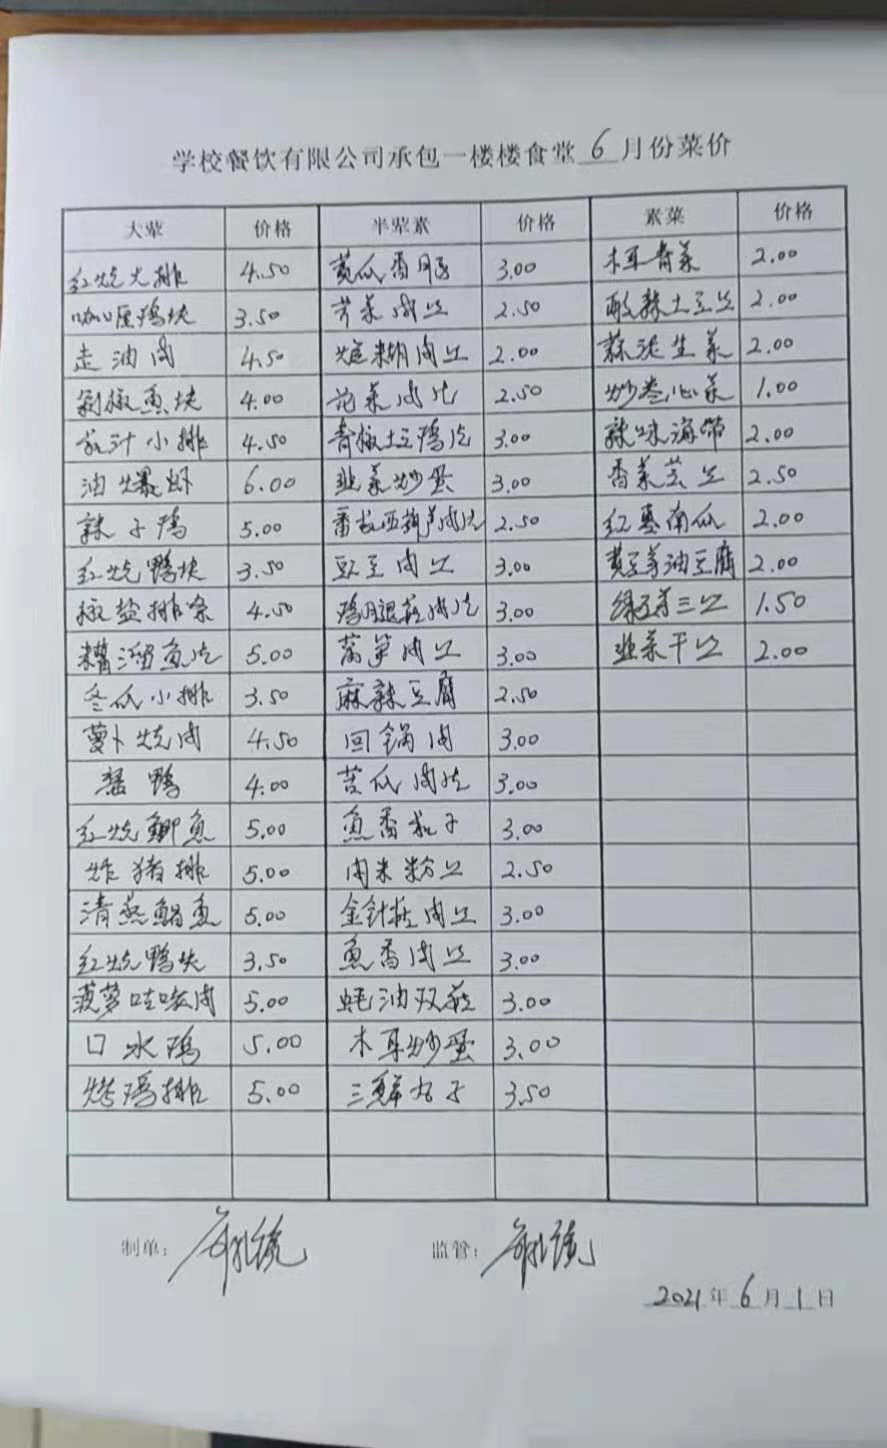 学校餐饮有限公司承包一楼楼食堂 6 月份菜价
大荤 价格 半荤素 价格 素菜 价格
红烧大排 4.50 黄瓜香肠 3.00 木耳青菜 2.00
咖喱鸡块 3.50 芹菜肉丝 2.50 酸辣土豆丝 2.00
走油肉 4.50 肉丝 2.00 蒜泥生菜 2.00
剁椒鱼块 4.00 花菜肉片 2.50 炒卷心菜 1.00
茄汁小排 4.50 青椒土豆鸡片 3.00 辣味海带 2.00
油爆虾 6.00 韭菜炒蛋 3.00 香菜芸丝 2.50
辣子鸡 5.00 番茄西葫芦肉片 2.50 红枣南瓜 2.00
红烧鸭块 3.50 豇豆肉丝 3.00 黄豆芽油豆腐 2.00
椒盐排条 4.50 鸡腿菇肉片 3.00 绿豆芽三丝 1.50
糟溜鱼片 5.00 莴笋肉丝 3.00 韭菜干丝 2.00
冬瓜小排 3.50 麻辣豆腐 2.50
萝卜烧肉 4.50 回锅肉 3.00
酱鸭 4.00 苦瓜肉片 3.00
红烧鲫鱼 5.00 鱼香茄子 3.00
炸猪排 5.00 肉末粉丝 2.50
清蒸鲳鱼 5.00 金针菇肉丝 3.00
红烧鸭块 3.50 鱼香肉丝 3.00
菠萝咕咾肉 5.00 蚝油双菇 3.00
口水鸡 5.00 木耳炒蛋 3.00
烤鸡排 5.00 三鲜丸子 3.50
制单： 监管：
2021 年 6 月 1 日